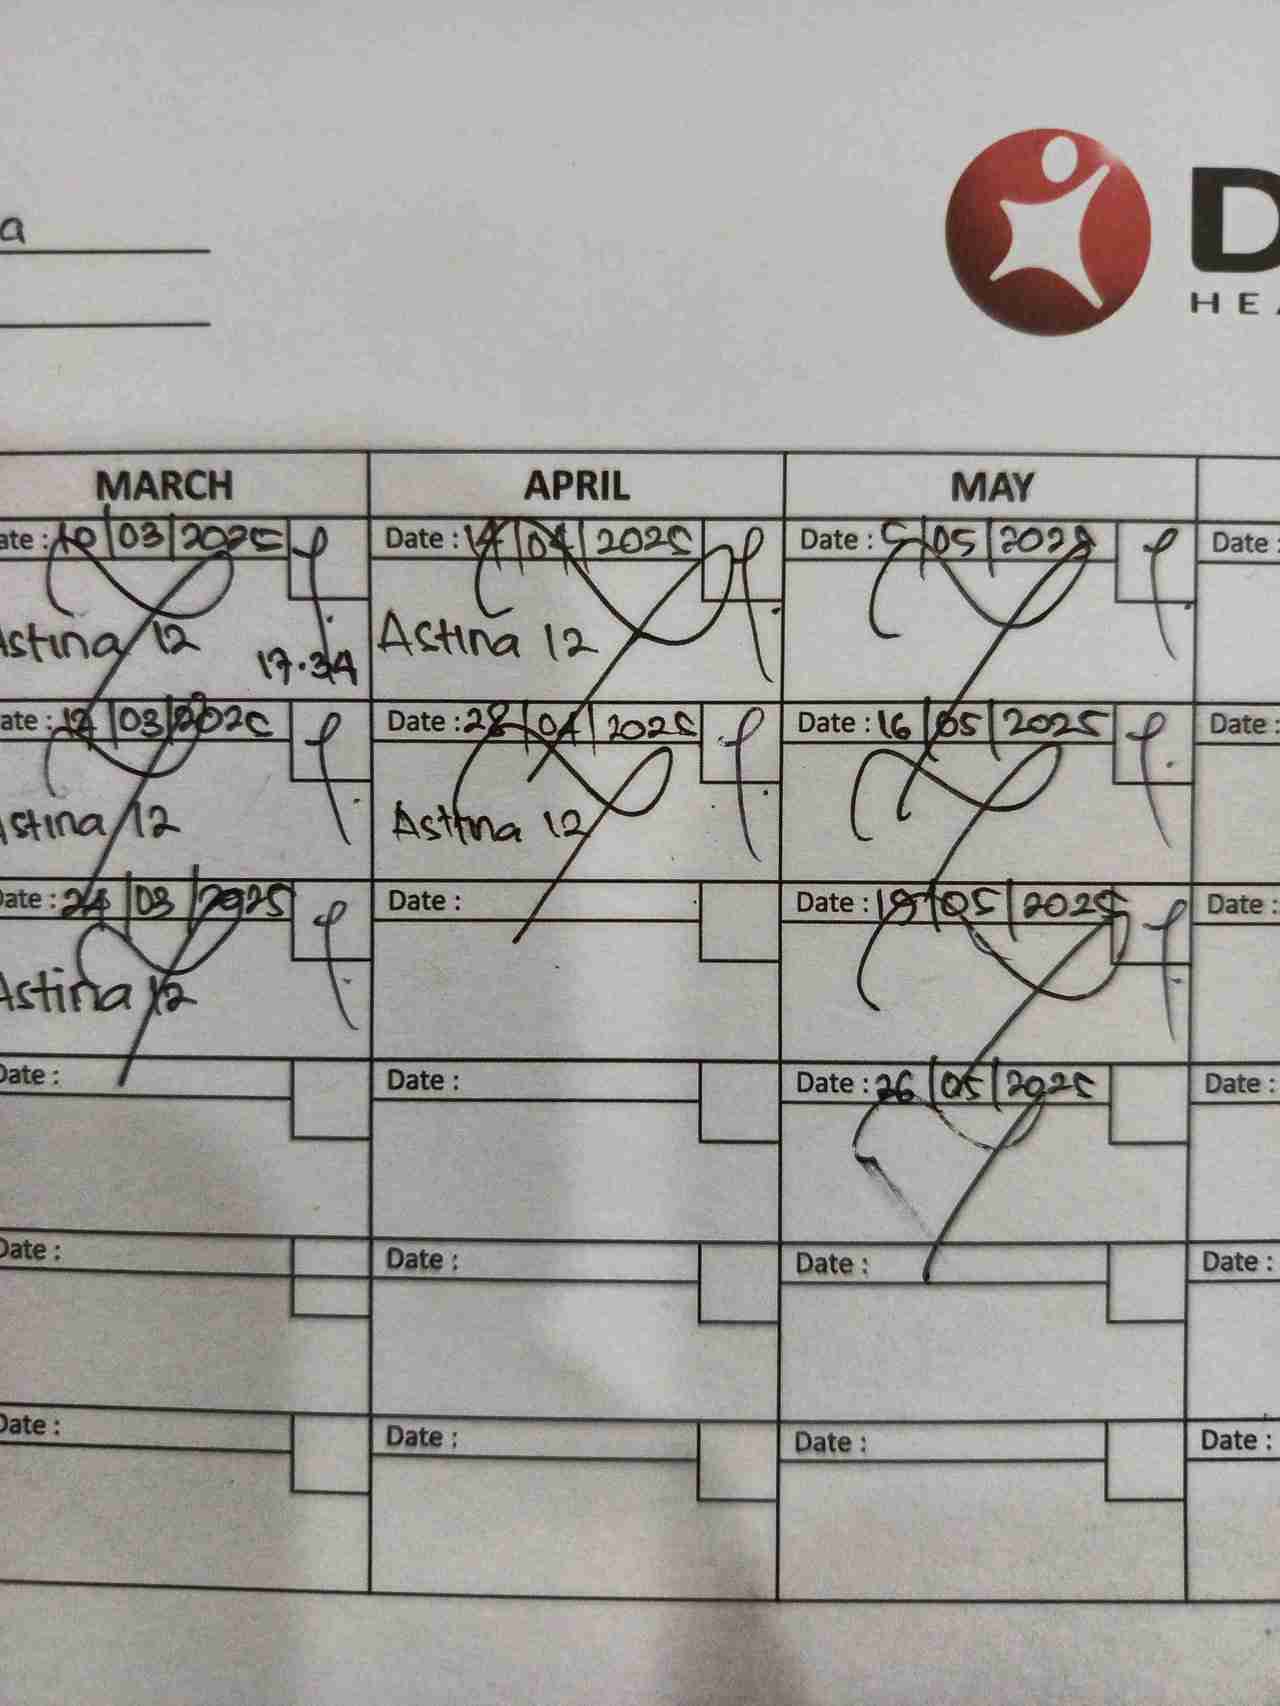 a
D
HEA
MARCH APRIL MAY
ate : 10/03/2025 Date : 14/04/2025 Date : 5/05/2025 Date :
Astina 12 Astina 12
17.34
ate : 17/03/2025 Date : 28/04/2025 Date : 16/05/2025 Date :
Astina 12 Astina 12
Date : 24/03/2025 Date : Date : 19/05/2025 Date :
Astina 12
Date : Date : Date : 26/05/2025 Date :
Date : Date : Date : Date :
Date : Date : Date : Date :